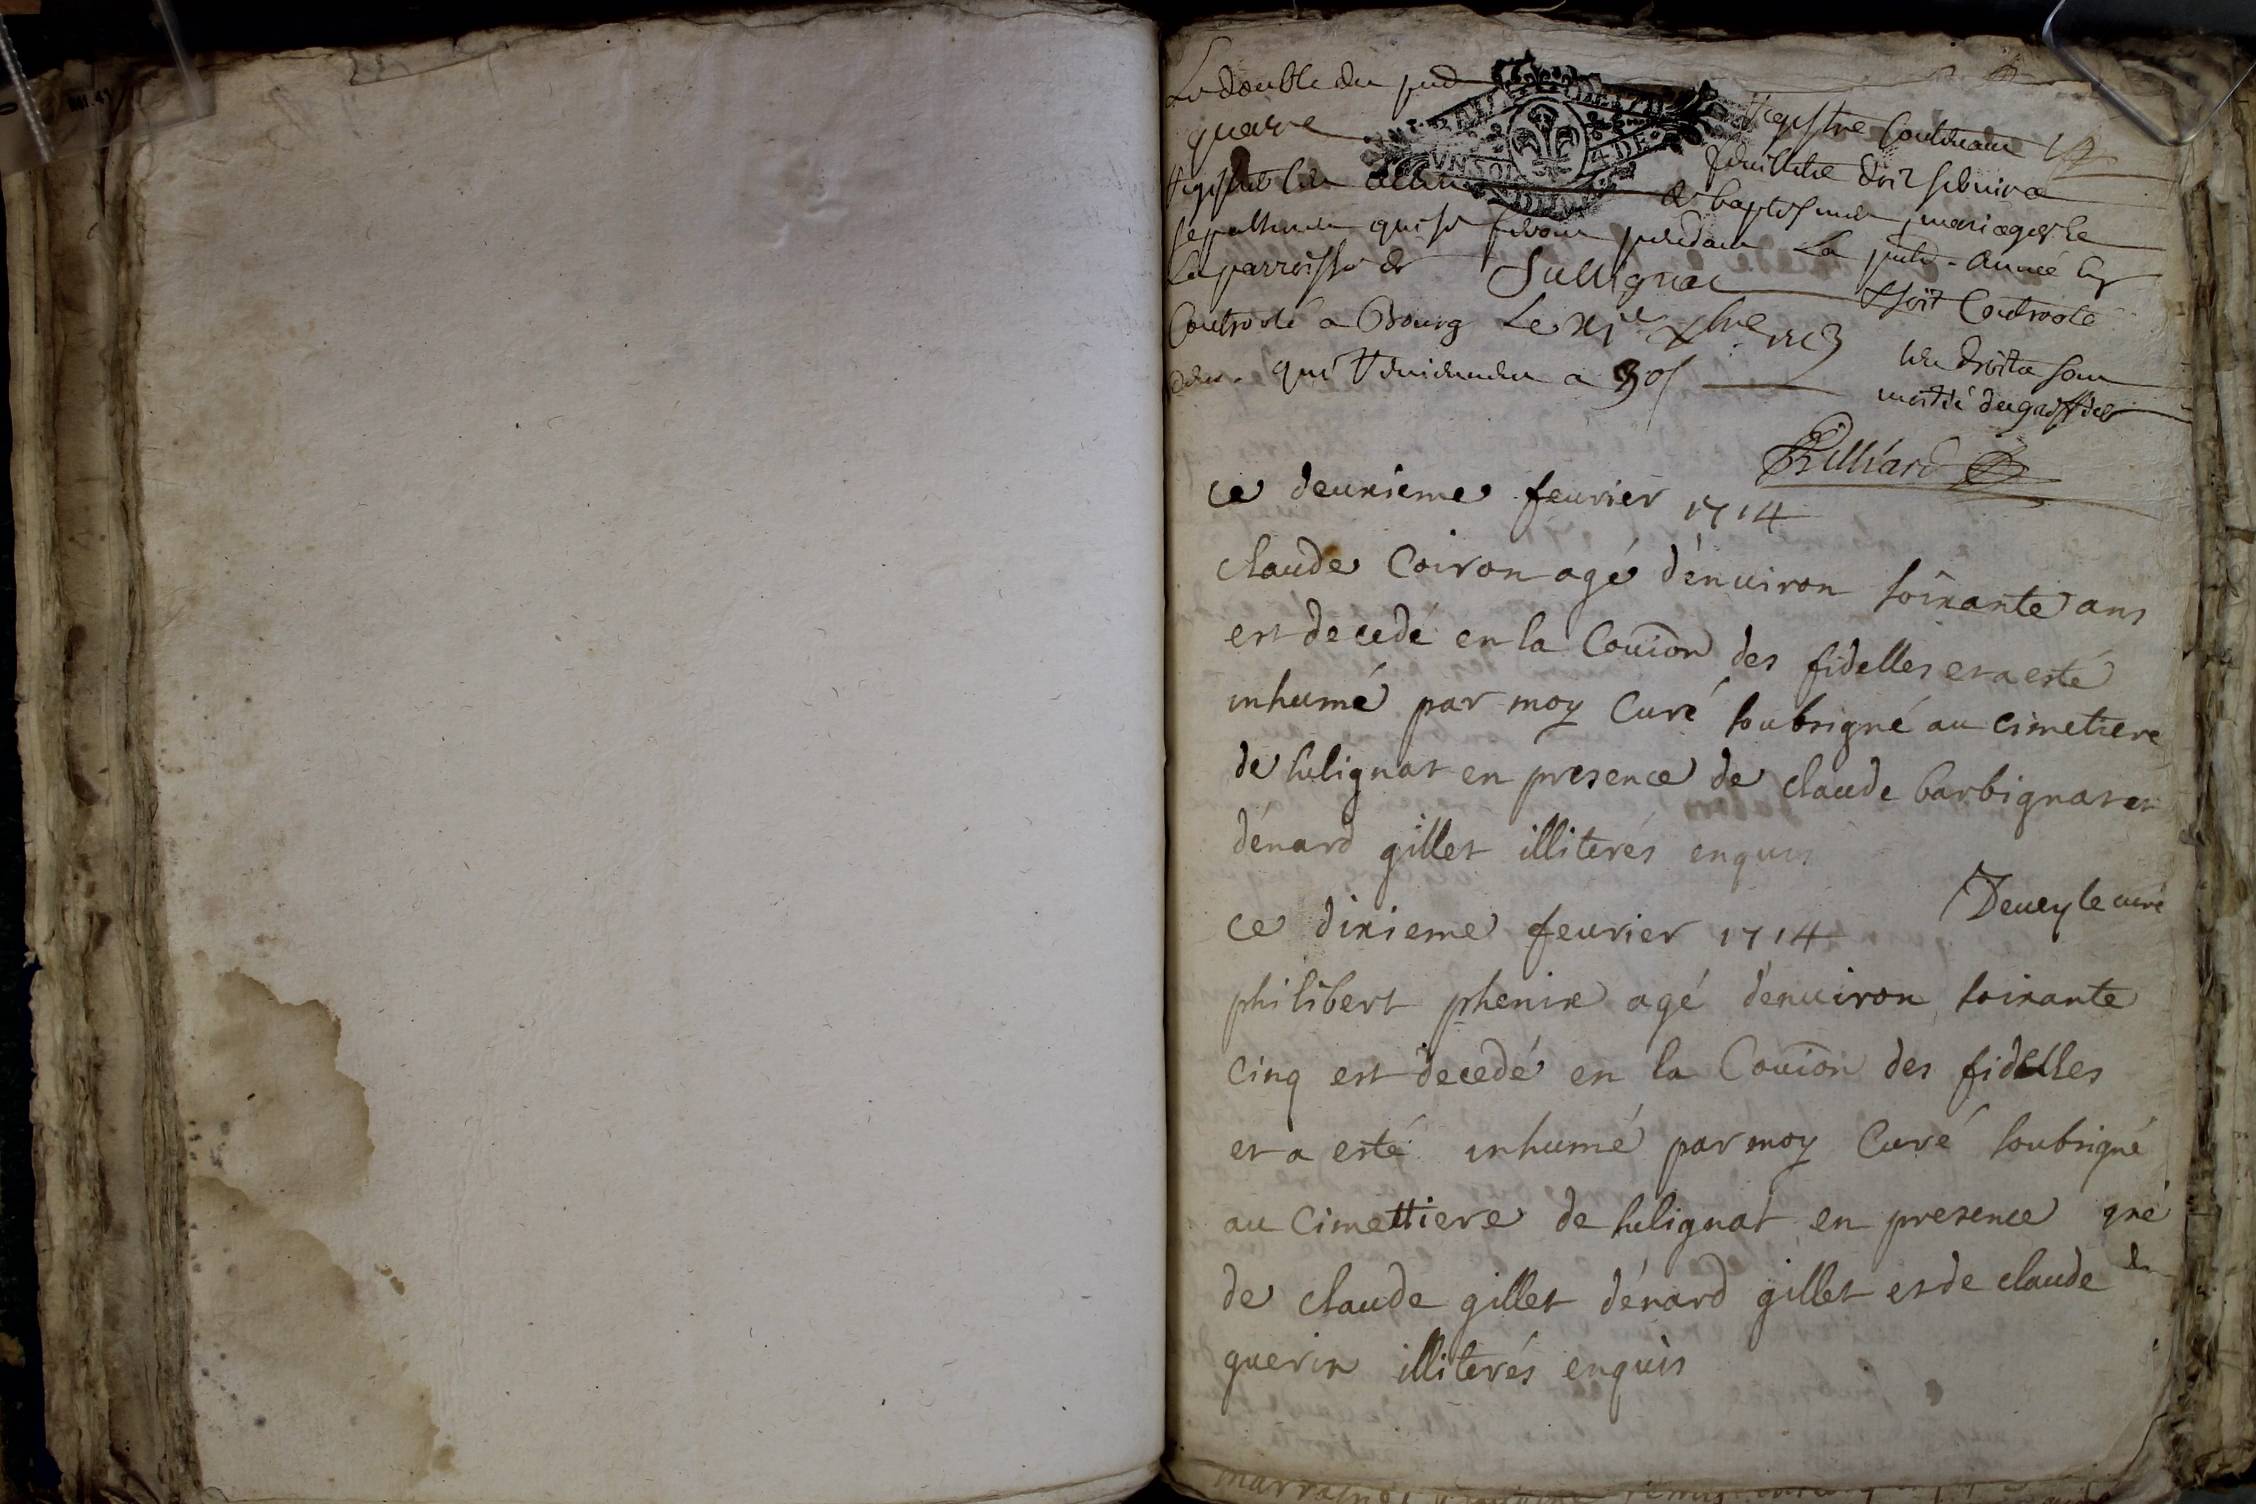 Le double du pnt Registre Contenant
quatre feuillets doit servir a
Registrer les actes de baptesmes mariages &
sepultures qui se feront pendant La pnte année en
La parroisse de Sullignat
Controolé a Bourg Le xje xbre 1713 les droits sont
moitié du greffier
Billiard
ce deuxieme feurier 1714
claude Coiron agé d'enuiron soixante ans
est decedé en la Couion des fidelles et a esté
inhumé par moy Curé soubsigné au cimetiere
de sulignat en presence de claude barbignat et
dénard gillet illiterés enquis
Deuey le curé
ce dixieme feurier 1714
philibert phenix agé denuiron soixante
cinq est decedé en la Couion des fidelles
et a esté inhumé par moy Curé soubsigné
au Cimettiere de sulignat en presence
de claude gillet dénard gillet et de claude
guerin illiterés enquis